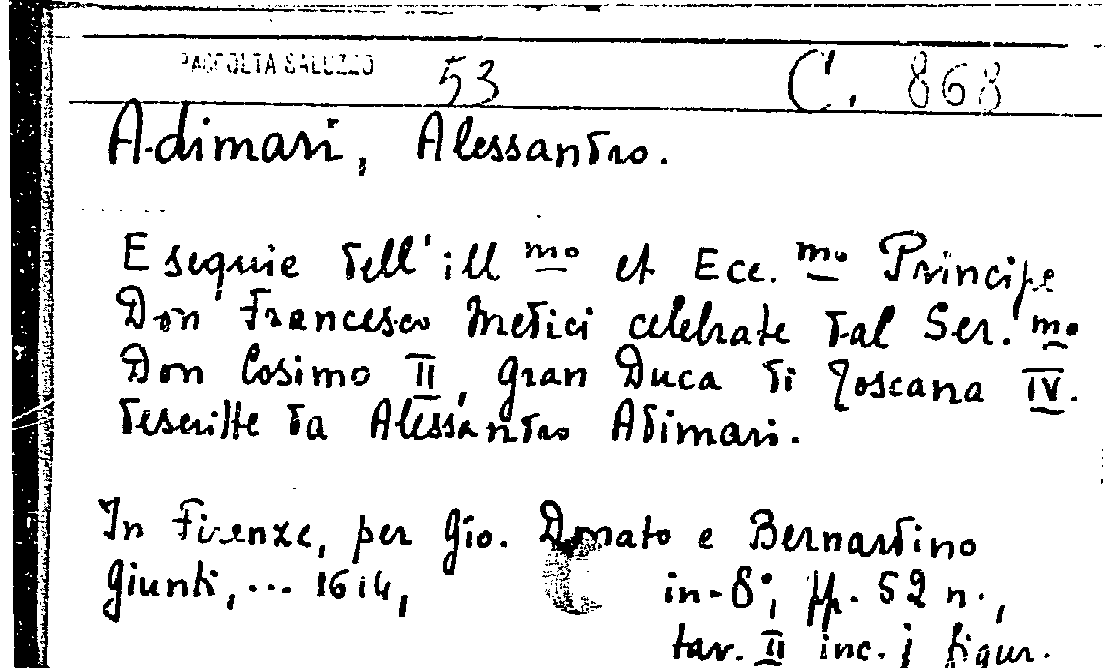 RACCOLTA SALUZZO 53 C. 868
Adimari, Alessandro.
Esequie dell'ill mo et Ecc. mo Principe
Don Francesco Medici celebrate dal Ser. mo
Don Cosimo II, Gran Duca di Toscana IV.
descritte da Alessandro Adimari.
In Firenze, per Gio. Donato e Bernardino
Giunti, ... 1614,
in-8°, pp. 52 n.,
tav. II inc. j figur.